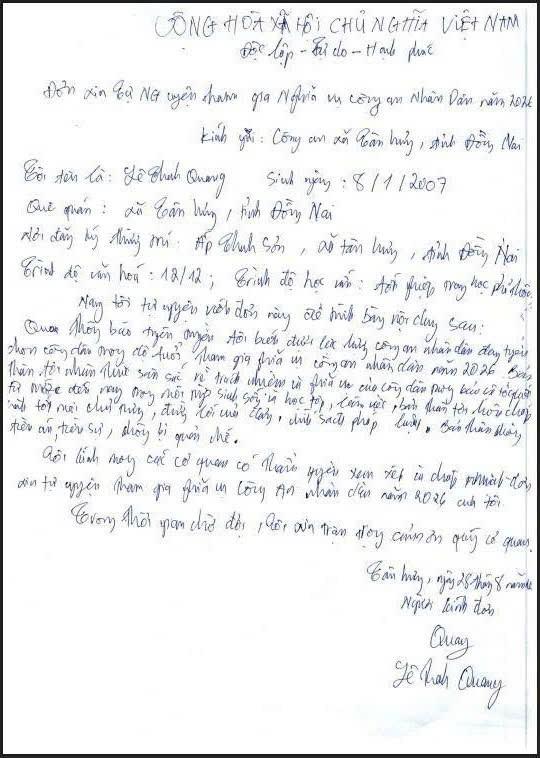 CÔNG HÒA XÃ HỘI CHỦ NGHĨA VIỆT NAM
Độc lập - Tự do - Hạnh phúc
Đơn xin Tự Nguyện tham gia Nghĩa vụ công an Nhân Dân năm 2026
Kính gửi: Công an xã Tân hưng, tỉnh Đồng Nai
Tôi tên là: Lê Thanh Quang Sinh ngày: 8/1/2007
Quê quán: xã Tân hưng, tỉnh Đồng Nai
Nơi đăng ký thường trú: Ấp Thanh Sơn, xã tân hưng, tỉnh Đồng Nai
Trình độ văn hoá: 12/12; Trình độ học vấn: tốt nghiệp trung học phổ thông
Nay tôi tự nguyện viết đơn này để trình bày nội dung sau:
Qua thông báo tuyên truyền tôi biết được lực lượng công an nhân dân đang tuyển
chọn công dân trong độ tuổi tham gia nghĩa vụ công an nhân dân năm 2026. Bản
thân tôi nhận thức sâu sắc về trách nhiệm và nghĩa vụ của công dân trong bảo vệ tổ quốc
từ trước đến nay trong mọi nơi sinh sống và học tập, làm việc, bản thân tôi luôn chấp
hành tốt mọi chủ trương, đường lối của đảng, chính sách pháp luật. Bản thân không
tiền án, tiền sự, không bị quản chế.
Tôi kính mong các cơ quan có thẩm quyền xem xét và chấp nhận đơn
xin tự nguyện tham gia nghĩa vụ Công An nhân dân năm 2026 của tôi
Trong thời gian chờ đợi, tôi xin trân trọng cảm ơn quý cơ quan.
Tân hưng, ngày 28 tháng 8 năm
Người kính đơn
Quay
Lê Thanh Quang